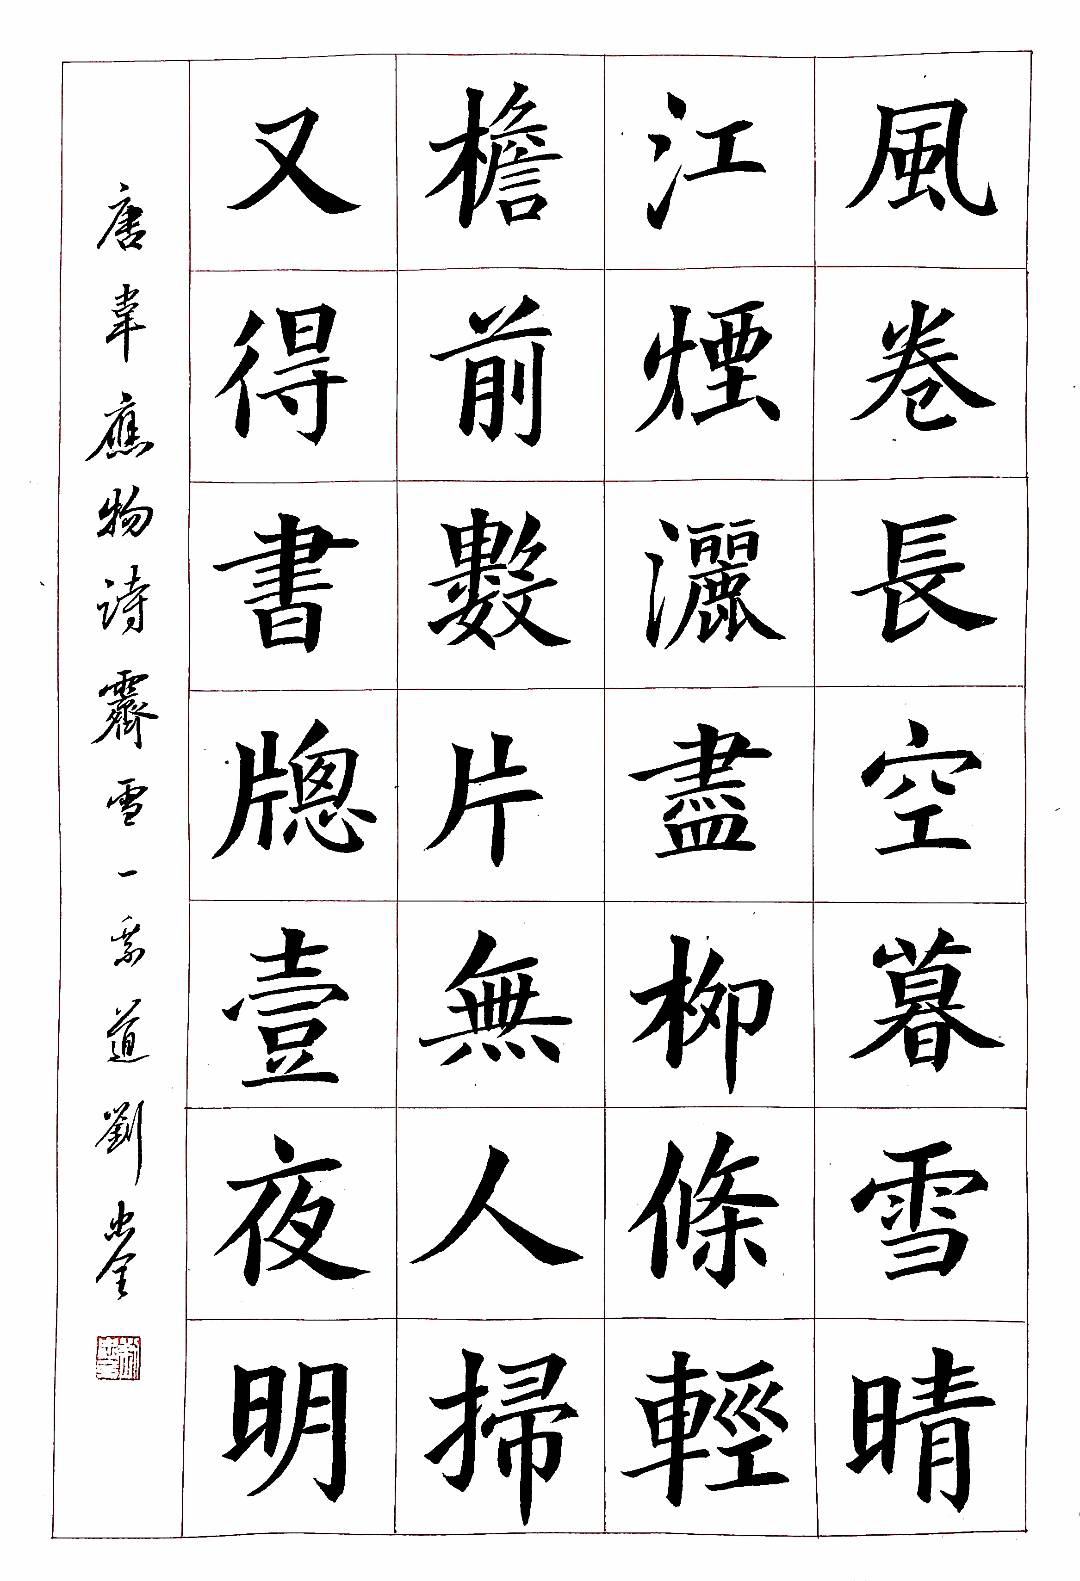 風卷長空暮雪晴
江煙灑盡柳條輕
檐前數片無人掃
又得書牕壹夜明
唐韋應物诗霽雪一首道劉忠全